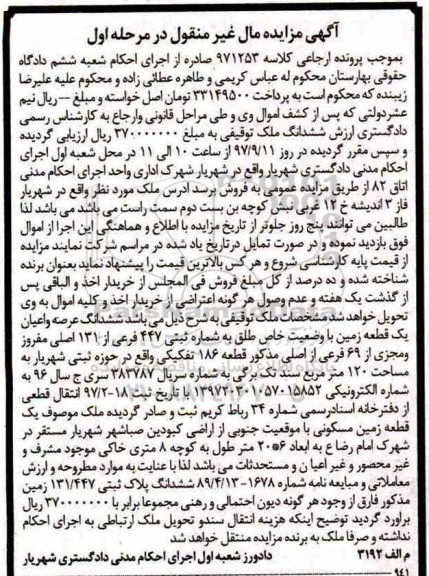 آگهی مزایده مال غیر منقول در مرحله اول
بموجب پرونده ارجاعی کلاسه ۹۷۱۲۵۳ صادره از اجرای احکام شعبه ششم دادگاه
حقوقی بهارستان محکوم له عباس کریمی و طاهره عطائی زاده و محکوم علیه علیرضا
زیبنده که محکوم است به پرداخت ۳۳۱۴۹۵۰۰ تومان اصل خواسته و مبلغ --- ریال نیم
عشر دولتی که پس از کشف اموال وی و طی مراحل قانونی وارجاع به کارشناس رسمی
دادگستری ارزش ششدانگ ملک توقیفی به مبلغ ۳۷۰۰۰۰۰۰۰ ریال ارزیابی گردیده
و سپس مقرر گردیده در روز ۹۷/۹/۱۱ از ساعت ۱۰ الی ۱۱ در محل شعبه اول اجرای
احکام مدنی دادگستری شهریار واقع در شهریار شهرک اداری واحد اجرای احکام مدنی
اتاق ۸۲ از طریق مزایده عمومی به فروش برسد ادرس ملک مورد نظر واقع در شهریار
فاز ۳ اندیشه خ ۱۲ غربی نبش کوچه بن بست دوم سمت راست می باشد می باشد لذا
طالبین می توانند پنج روز جلوتر از تاریخ مزایده با اطلاع و هماهنگی این اجرا از اموال
فوق بازدید نموده و در صورت تمایل در تاریخ یاد شده در مراسم شرکت نمایند مزایده
از قیمت پایه کارشناسی شروع و هر کس بالاترین قیمت را پیشنهاد نماید بعنوان برنده
شناخته شده و ده درصد از کل مبلغ فروش فی المجلس از خریدار اخذ و الباقی پس
از گذشت یک هفته و عدم وصول هر گونه اعتراضی از خریدار اخذ و کلیه اموال به وی
تحویل خواهد شد مشخصات ملک توقیفی به شرح ذیل می باشد ششدانگ عرصه واعیان
یک قطعه زمین با وضعیت خاص طلق به شماره ثبتی ۴۴۷ فرعی از ۱۳۱ اصلی مفروز
ومجزی از ۶۹ فرعی از اصلی مذکور قطعه ۱۸۶ تفکیکی واقع در حوزه ثبتی شهریار به
مساحت ۱۲۰ متر مربع سند تک برگی به شماره سریال ۳۸۳۷۸۷ سری ج سال ۹۶ به
شماره الکترونیکی با تاریخ ثبت ۱۸-۹۷/۲ انتقال قطعی
از دفترخانه اسنادرسمی شماره ۳۴ رباط کریم ثبت و صادر گردیده ملک موصوف یک
قطعه زمین مسکونی با موقعیت جنوبی از اراضی کبودین صباشهر شهریار مستقر در
شهرک امام رضا ع به ابعاد ۶*۲۰ متر طول به کوچه ۸ متری خاکی موجود مشرف و
غیر محصور و غیر اعیان و مستحدثات می باشد لذا با عنایت به موارد مطروحه و ارزش
معاملاتی و مبایعه نامه شماره ۱۶۷۸-۸۹/۴/۱۳ ششدانگ پلاک ثبتی ۱۳۱/۴۴۷ زمین
مذکور فارق از وجود هر گونه دیون احتمالی و رهنی مجموعا برابر با ۳۷۰۰۰۰۰۰۰ ریال
براورد گردید توضیح اینکه هزینه انتقال سندو تحویل ملک ارتباطی به اجرای احکام
نداشته و صرفا ملک به برنده مزایده منتقل خواهد شد
م الف ۳۱۹۲ دادورز شعبه اول اجرای احکام مدنی دادگستری شهریار
۹۴۱